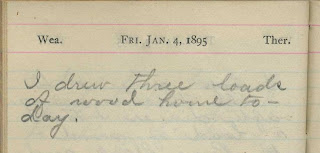 Wea. Fri. Jan. 4, 1895 Ther.
I drew three loads
of wood home to-
day.